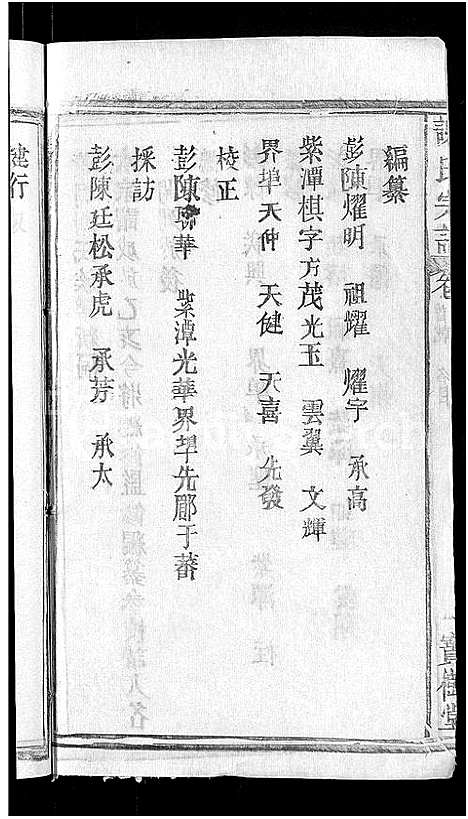 氏宗譜卷
寶樹堂
編纂
彭陳燿明 祖燿 燿宇 承高
紫潭棋字方茂光玉 雲翼 文輝
界埠天仲 天健 天喜 先發
校正
彭陳聯華 紫潭光華界埠先郿于蕃
採訪
彭陳廷松承虎 承芳 承太
建行